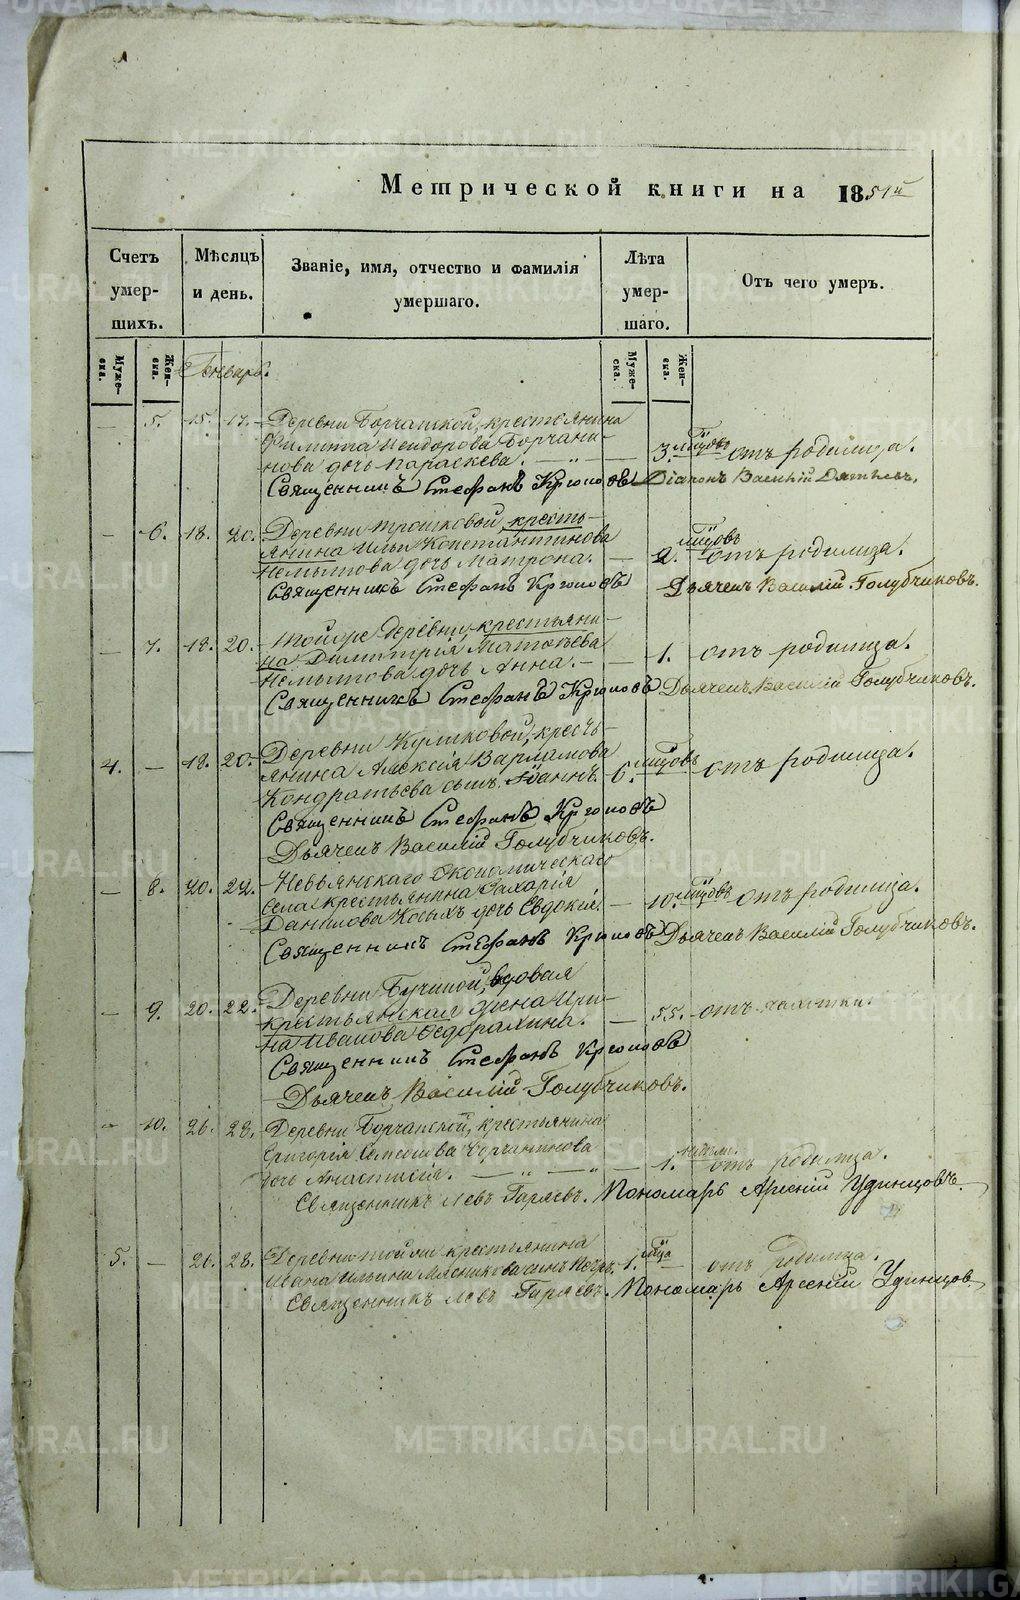 Метрической книги на 1851й
Счетъ умер-шихъ.
Мѣсяцъ и день.
Званіе, имя, отчество и фамилія умершаго.
Лѣта умер-шаго.
Отъ чего умеръ.
Муже-ска.
Жен-ска.
Генварь.
Муже-ска.
Жен-ска.
— 5. 15. 17. Деревни Борчанской, крестьянина
Филиппа Исидорова Борчани-
нова дочь Параскева. — 3. мцовъ отъ родимца.
Священникъ Стефанъ Крюковъ Діаконъ Василій
— 6. 18. 20. Деревни Трошковой, кресть-
янина Ильи Константинова
Немытова дочь Матрона. — 2. мцовъ отъ родимца.
Священникъ Стефанъ Крюковъ Дьячекъ Василій Голубчиковъ.
— 7. 18. 20. Той же деревни, крестьяни-
на Димитрія Матвѣева
Немытова дочь Анна. — 1. отъ родимца.
Священникъ Стефанъ Крюковъ Дьячекъ Василій Голубчиковъ.
4. — 18. 20. Деревни Куликовой, кресть-
янина Алексія Варламова
Кондратьева сынъ Іоаннъ. 6. мцовъ отъ родимца.
Священникъ Стефанъ Крюковъ
Дьячекъ Василій Голубчиковъ.
— 8. 20. 22. Невьянскаго Экономическаго
села крестьянина Захарія
Данилова Косыхъ дочь Евдокія. — 10. мцовъ отъ родимца.
Священникъ Стефанъ Крюковъ Дьячекъ Василій Голубчиковъ.
— 9. 20. 22. Деревни Бучиной, вдовая
крестьянская жена Ири-
на Иванова Ѳедорахина. — 55. отъ чахотки.
Священникъ Стефанъ Крюковъ
Дьячекъ Василій Голубчиковъ.
— 10. 26. 28. Деревни Борчанской, крестьянина
Григорія Семенова Борчанинова
дочь Анастасія. — 1. недѣли. отъ родимца.
Священникъ Левъ Гаряевъ. Пономарь Арсеній Удинцовъ
5. — 26. 28. Деревни той же крестьянина
Ивана Ильина Мясникова сынъ Петръ. 1. мца отъ родимца.
Священникъ Левъ Гаряевъ. Пономарь Арсеній Удинцов
METRIKI.GASO-URAL.RU